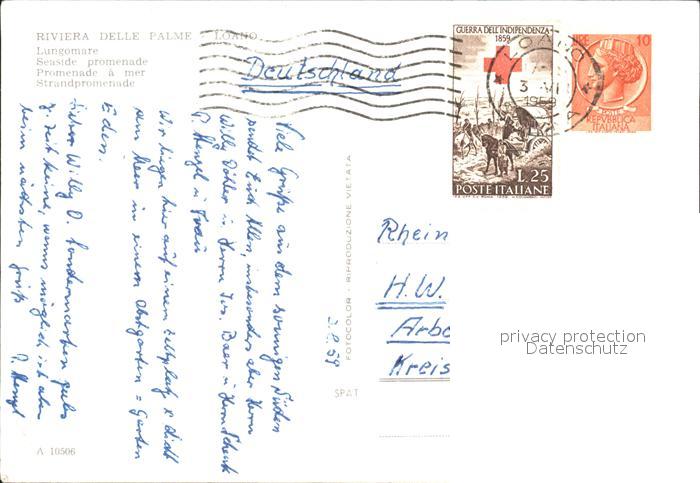 RIVIERA DELLE PALME - LOANO
Lungomare
Seaside promenade
Promenade à mer
Strandpromenade
Deutschland
GUERRA DELL'INDIPENDENZA
1859
LOANO
3
1959
L.25
POSTE ITALIANE
LIRE 10
POSTE
REPUBBLICA
ITALIANA
Viele Grüße aus dem sonnigen Süden
sendet Euch Allen, insbesondere aber Herrn
Willy Döhler u. Herrn Ios. Baer u. Herrn Schenk
P. Hengl u. Frau
Wir liegen hier auf einem Zeltplatz dicht
am Meer in einem Obstgarten = Garten
Eden.
Lieber Willy D. Sondermarken gibts
z. Zeit keine, wenns möglich ist aber
beim nächsten Gruß P. Hengl
3.8.59
FOTOCOLOR - RIPRODUZIONE VIETATA
SPAT
Rhein
H.W.
Arbe
Kreis
privacy protection
Datenschutz
A 10506